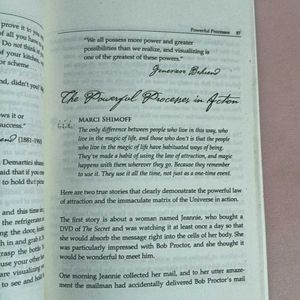 Powerful Processes 87
"We all possess more power and greater
possibilities than we realize, and visualizing is
one of the greatest of these powers."
Genevieve Behrend
The Powerful Processes in Action
MARCI SHIMOFF
The only difference between people who live in this way, who
live in the magic of life, and those who don't is that the people
who live in the magic of life have habituated ways of being.
They've made a habit of using the law of attraction, and magic
happens with them wherever they go. Because they remember
to use it. They use it all the time, not just as a one-time event.
Here are two true stories that clearly demonstrate the powerful law
of attraction and the immaculate matrix of the Universe in action.
The first story is about a woman named Jeannie, who bought a
DVD of The Secret and was watching it at least once a day so that
she would absorb the message right into the cells of her body. She
was particularly impressed with Bob Proctor, and she thought it
would be wonderful to meet him.
One morning Jeannie collected her mail, and to her utter amaze-
ment the mailman had accidentally delivered Bob Proctor's mail
prove it to you
of all you have
Do not think of
of your kitchen,
or scheme.
and, didn't you?
ws it or
success."
(1881-1960)
Demartini shares
said that if you
to hold that
and this time
the refrigerator
ing the door,
h in and grab
rasp the bottle
use your other
are visualizing
to see and hold